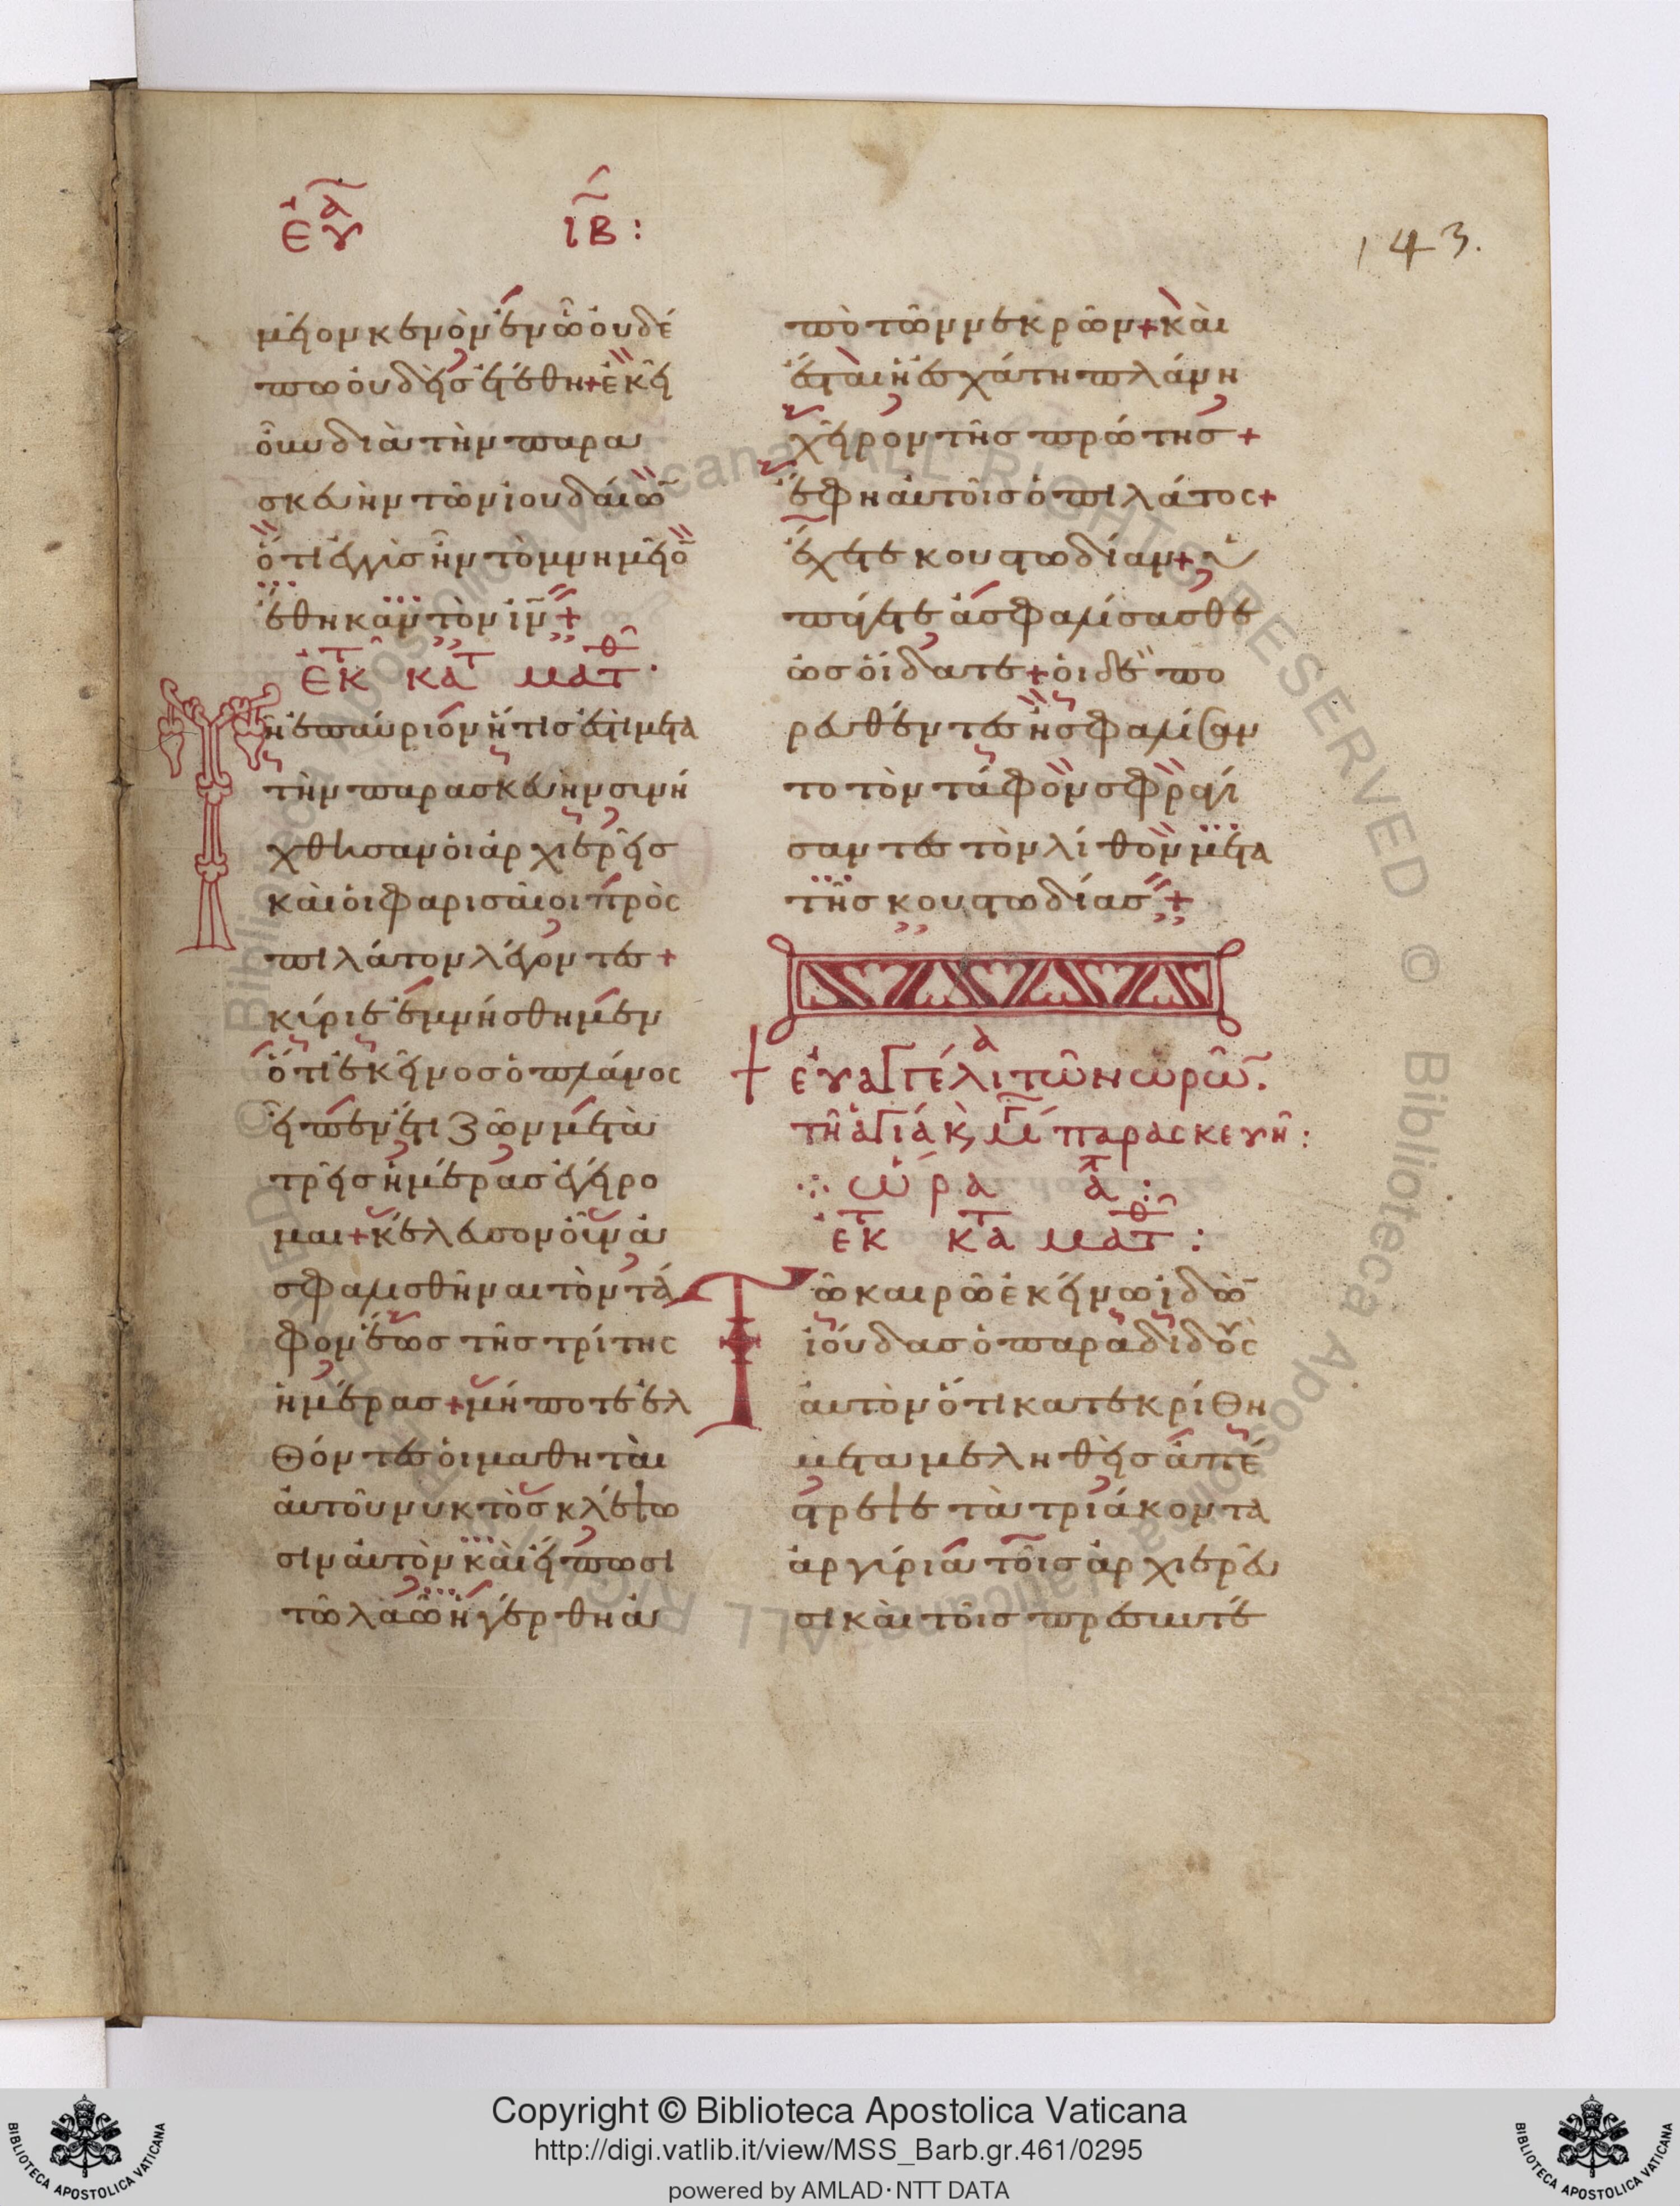 εὐα ιβ:
143.
μεῖον κενὸν ἐν ᾧ οὐδέ
πω οὐδεὶς ἐτέθη + ἐκεῖ
οὖν διὰ τὴν παρα
σκευὴν τῶν ἰουδαίω̃
ὅτι ἐγγὺς ἦν τὸ μνημεῖο̃
ἔθηκαν τὸν ἰν̃ +
ἐκ τ κατ ματθ
Τῇ ἐπαύριον ἥτις ἐστὶ μετὰ
τὴν παρασκευὴν συνή
χθησαν οἱ ἀρχιερεῖς
καὶ οἱ φαρισαῖοι πρὸς
πιλάτον λέγοντες +
κύριε ἐμνήσθημεν
ὅτι ἐκεῖνος ὁ πλάνος
εἶπεν ἔτι ζῶν μετὰ
τρεῖς ἡμέρας ἐγείρο
μαι + κέλευσον οὖν ἀ
σφαλισθῆναι τὸν τά
φον ἕως τῆς τρίτης
ἡμέρας + μήποτε ἐλ
θόντες οἱ μαθηταὶ
αὐτοῦ νυκτὸς κλέψω
σιν αὐτὸν καὶ εἴπωσι
τῷ λαῷ ἠγέρθη ἀ
πὸ τῶν νεκρῶν + καὶ
ἔσται ἡ ἐσχάτη πλάνη
χεῖρον τῆς πρώτης +
ἔφη αὐτοῖς ὁ πιλάτος +
ἔχετε κουστωδίαν + ὑ
πάγετε ἀσφαλίσασθε
ὡς οἴδατε + οἱ δὲ πο
ρευθέντες ἠσφαλίσαν
το τὸν τάφον σφραγί
σαντες τὸν λίθον μετὰ
τῆς κουστωδίας +
+ εὐαγγέλια τῶν ὡρῶ̃.
τῇ ἁγίᾳ κ, μγ παρασκευῇ:
ὥρα α:
ἐκ τ κατ ματθ:
Τῷ καιρῷ ἐκείνῳ ἰδὼ̃
ἰούδας ὁ παραδιδοὺς
αὐτὸν ὅτι κατεκρίθη
μεταμεληθεὶς ἀπέ
στρεψε τὰ τριάκοντα
ἀργύρια τοῖς ἀρχιερεῦ
σι καὶ τοῖς πρεσβυτέ
Copyright © Biblioteca Apostolica Vaticana
http://digi.vatlib.it/view/MSS_Barb.gr.461/0295
powered by AMLAD·NTT DATA
BIBLIOTECA APOSTOLICA VATICANA
BIBLIOTECA APOSTOLICA VATICANA